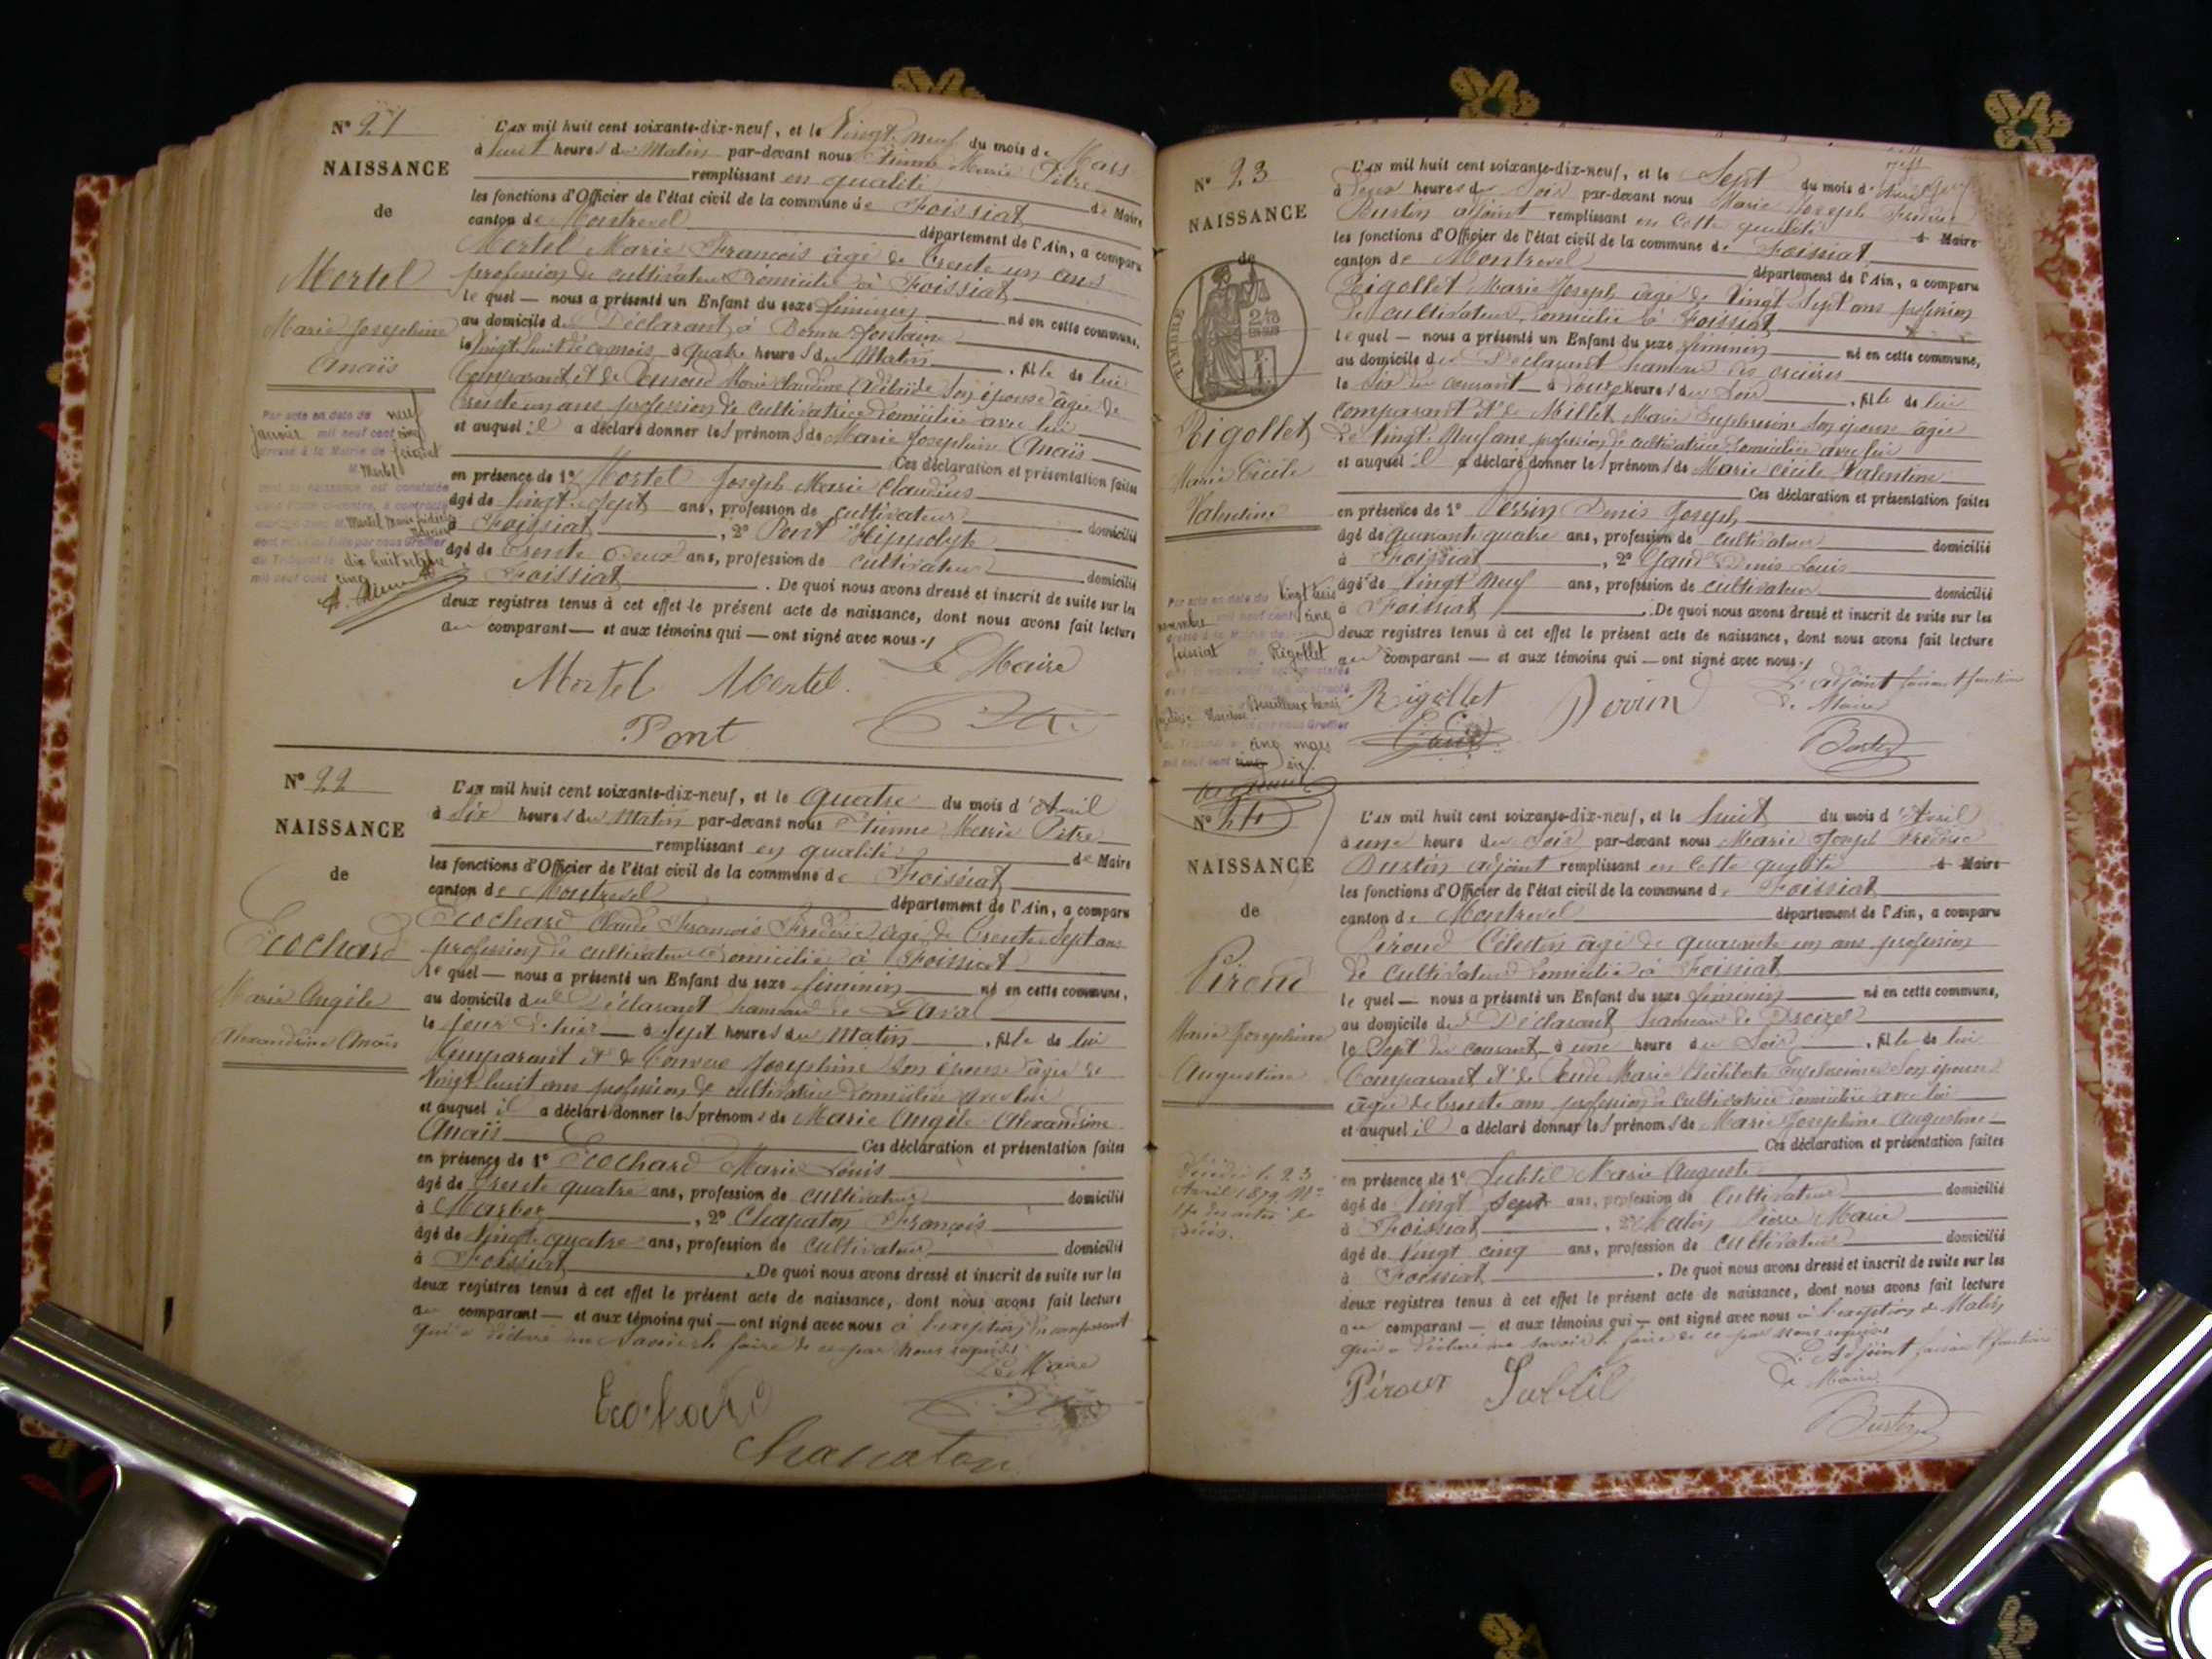 N° 21
NAISSANCE
de
Mortel
Marie Josephine
Anaïs
L'AN mil huit cent soixante-dix-neuf, et le Vingt neuf du mois de Mars
à huit heures du Matin par-devant nous Etienne Marie Pitre
remplissant en qualité de Maire
les fonctions d'Officier de l'état civil de la commune de Foissiat
canton de Montrevel département de l'Ain, a comparu
Mortel Marie François âgé de trente un ans
profession de cultivateur domicilié à Foissiat
le quel — nous a présenté un Enfant du sexe féminin né en cette commune,
au domicile du Déclarant à
le vingt huit de ce mois à quatre heures du Matin, fille de lui
Comparant et de Marie Claudine Adélaïde son épouse âgée de
trente un ans profession de cultivatrice domiciliée avec lui
et auquel il a déclaré donner les prénoms de Marie Josephine Anaïs
Ces déclaration et présentation faites
en présence de 1° Mortel Joseph Marie Claudius
âgé de vingt sept ans, profession de cultivateur domicilié
à Foissiat, 2° Pont Hippolyte
âgé de trente deux ans, profession de cultivateur domicilié
à Foissiat. De quoi nous avons dressé et inscrit de suite sur les
deux registres tenus à cet effet le présent acte de naissance, dont nous avons fait lecture
au comparant — et aux témoins qui — ont signé avec nous
Mortel Mortel Le Maire
Pont
Par acte en date du neuf
janvier mil neuf cent cinq
dressé à la Mairie de foissiat
M. Mortel
dix huit octobre
mil neuf cent cinq
N° 22
NAISSANCE
de
Ecochard
Marie Angèle
Alexandrine Anaïs
L'AN mil huit cent soixante-dix-neuf, et le quatre du mois d'Avril
à Six heures du Matin par-devant nous Etienne Marie Pitre
remplissant en qualité de Maire
les fonctions d'Officier de l'état civil de la commune de Foissiat
canton de Montrevel département de l'Ain, a comparu
Ecochard Claude François Frédéric âgé de trente sept ans
profession de cultivateur domicilié à Foissiat
le quel — nous a présenté un Enfant du sexe féminin né en cette commune,
au domicile du Déclarant hameau de Laval
le jour d'hier à sept heures du matin, fille de lui
Comparant et de Josephine son épouse âgée de
vingt huit ans profession de cultivatrice domiciliée avec lui
et auquel il a déclaré donner les prénoms de Marie Angèle Alexandrine
Anaïs Ces déclaration et présentation faites
en présence de 1° Ecochard Marie Louis
âgé de trente quatre ans, profession de cultivateur domicilié
à Marboz, 2° Chapaton François
âgé de Vingt quatre ans, profession de cultivateur domicilié
à Foissiat. De quoi nous avons dressé et inscrit de suite sur les
deux registres tenus à cet effet le présent acte de naissance, dont nous avons fait lecture
au comparant — et aux témoins qui — ont signé avec nous à l'exception du comparant
qui a déclaré ne savoir le faire de ce par nous requis
Le Maire
Ecochard
Chapaton
N° 23
NAISSANCE
de
TIMBRE
Rigollet
Marie Cécile
Valentine
L'AN mil huit cent soixante-dix-neuf, et le Sept du mois d'Avril
à deux heures du Soir par-devant nous Marie Joseph Frédéric
Bustin adjoint remplissant en cette qualité d Maire
les fonctions d'Officier de l'état civil de la commune de Foissiat
canton de Montrevel département de l'Ain, a comparu
Rigollet Marie Joseph âgé de vingt sept ans profession
de cultivateur domicilié à Foissiat
le quel — nous a présenté un Enfant du sexe féminin né en cette commune,
au domicile du Déclarant hameau des
le six du courant à douze heures du Soir, fille de lui
comparant et de Millet Marie Euphrosine son épouse âgée
de vingt neuf ans profession de cultivatrice domiciliée avec lui
et auquel il a déclaré donner les prénoms de Marie Cécile Valentine
Ces déclaration et présentation faites
en présence de 1° Perrin Denis Joseph
âgé de quarante quatre ans, profession de cultivateur domicilié
à Foissiat, 2° Denis Louis
âgé de vingt neuf ans, profession de cultivateur domicilié
à Foissiat. De quoi nous avons dressé et inscrit de suite sur les
deux registres tenus à cet effet le présent acte de naissance, dont nous avons fait lecture
au comparant — et aux témoins qui — ont signé avec nous
Rigollet Perrin L'adjoint faisant fonction
de Maire
Bustin
Par acte en date du vingt trois
novembre mil neuf cent cinq
foissiat Rigollet
cinq mars
mil neuf cent cinq six
N° 24
NAISSANCE
de
Piroud
Marie Josephine
Augustine
L'AN mil huit cent soixante-dix-neuf, et le huit du mois d'Avril
à une heure du Soir par-devant nous Marie Joseph Frédéric
Bustin adjoint remplissant en cette qualité d Maire
les fonctions d'Officier de l'état civil de la commune de Foissiat
canton de Montrevel département de l'Ain, a comparu
Piroud Célestin âgé de quarante un ans profession
de cultivateur domicilié à Foissiat
le quel — nous a présenté un Enfant du sexe féminin né en cette commune,
au domicile du Déclarant hameau de
le Sept du courant à une heure du Soir, fille de lui
Comparant et de Marie Philiberte Euphrosine son épouse
âgée de trente ans profession de cultivatrice domiciliée avec lui
et auquel il a déclaré donner les prénoms de Marie Josephine Augustine
Ces déclaration et présentation faites
en présence de 1° Subtil Marie Auguste
âgé de vingt sept ans, profession de Cultivateur domicilié
à Foissiat, 2° Malin Pierre Marie
âgé de vingt cinq ans, profession de cultivateur domicilié
à Foissiat. De quoi nous avons dressé et inscrit de suite sur les
deux registres tenus à cet effet le présent acte de naissance, dont nous avons fait lecture
au comparant — et aux témoins qui — ont signé avec nous à l'exception de Malin
qui a déclaré ne savoir le faire de ce par nous requis
L'Adjoint faisant fonction
de Maire
Piroux Subtil
Bustin
Décédée le 23
Avril 1879 N°
des actes de
Décès.